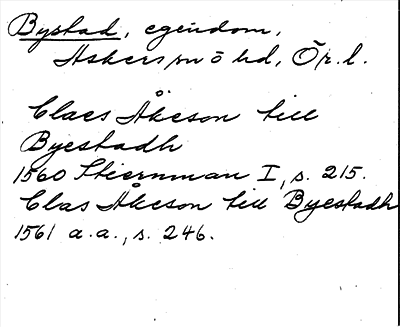 Bystad, egendom,
Askers sn ö hd, Ör. l.
Claes Åkeson till
Byestadh
1560 Stiernman I, s. 215.
Clas Åkeson till Byestadh
1561 a.a., s. 246.